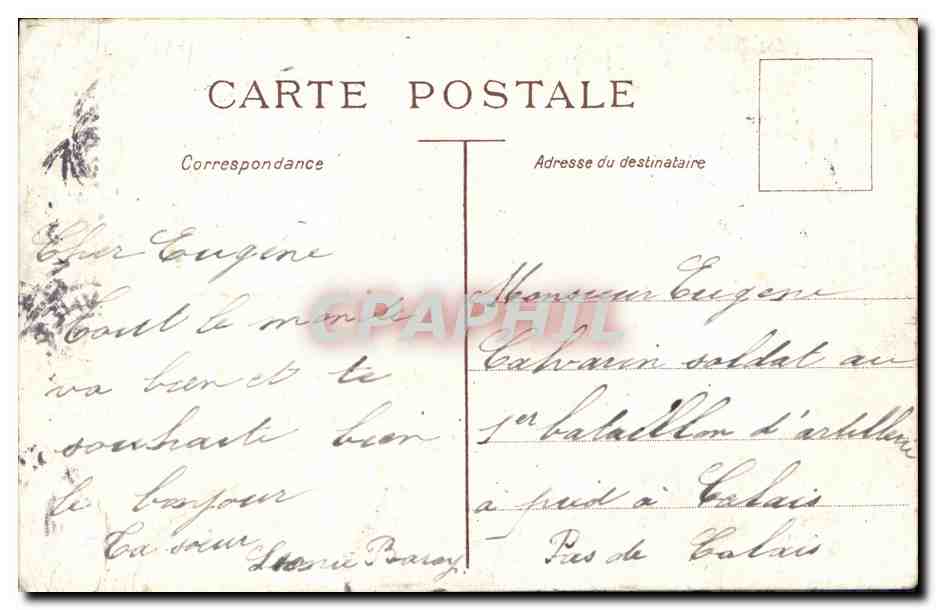 CARTE POSTALE
Correspondance
Adresse du destinataire
Cher Eugène
Tout le monde
va bien et te
souhaite bien
le bonjour
Ta sœur
Léonie
Monsieur Eugene
Calvarin soldat au
1er bataillon d'artillerie
à pied à Calais
Pas de Calais
CPAPHIL